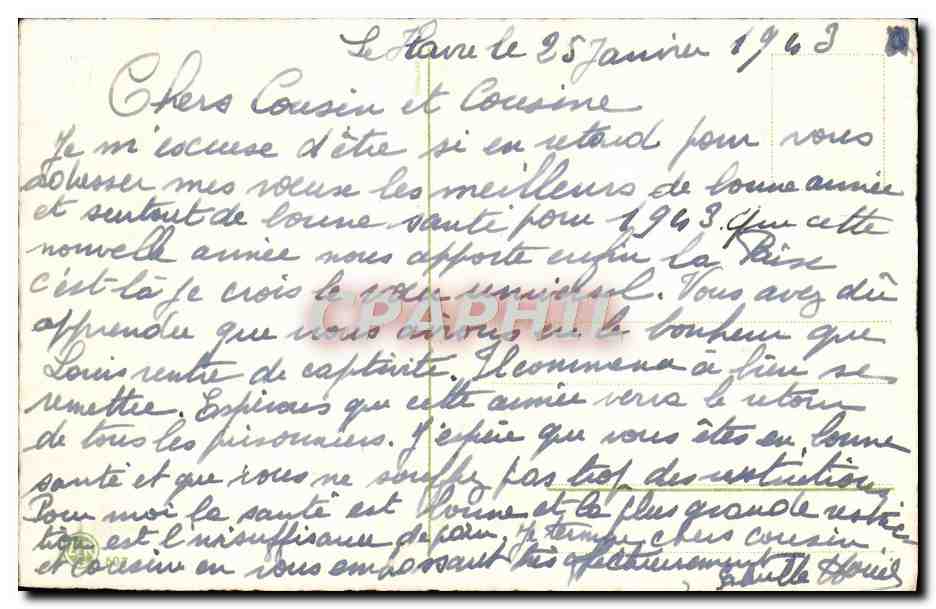 Le Havre le 25 Janvier 1943
Chers Cousin et Cousine
Je m'excuse d'être si en retard pour vous
adresser mes voeux les meilleurs de bonne année
et surtout de bonne santé pour 1943. que cette
nouvelle année nous apporte enfin la Paix
c'est-là je crois le voeu universel. Vous avez dû
apprendre que nous avons eu le bonheur que
Louis rentre de captivité. Il commence à bien se
remettre. Espérons que cette année verra le retour
de tous les prisonniers. J'espère que vous êtes en bonne
santé et que vous ne souffrez pas trop des restrictions
Pour moi la santé est bonne et la plus grande restric
tion est l'insuffisance de pain. Je termine chers cousin
et Cousine en vous embrassant très affectueusement
CPARAPHIL